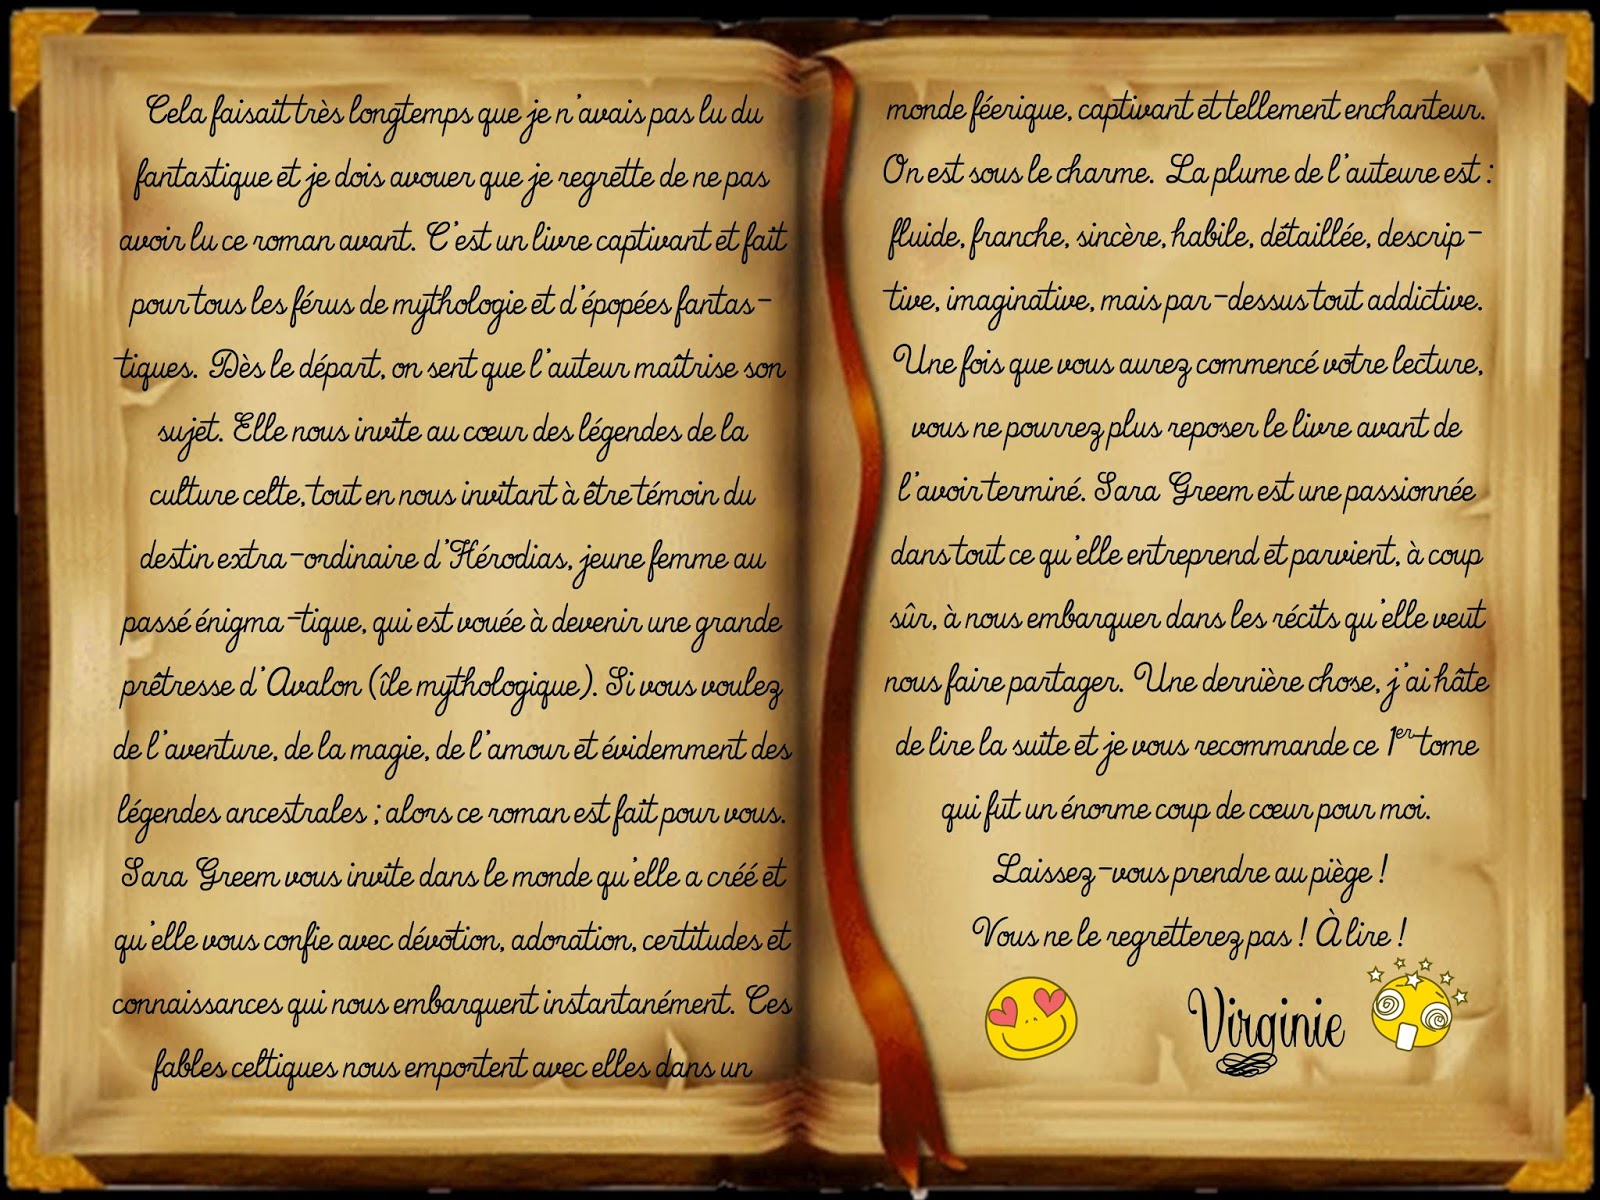 Cela faisait très longtemps que je n'avais pas lu du
fantastique et je dois avouer que je regrette de ne pas
avoir lu ce roman avant. C'est un livre captivant et fait
pour tous les férus de mythologie et d'épopées fantas-
tiques. Dès le départ, on sent que l'auteur maîtrise son
sujet. Elle nous invite au cœur des légendes de la
culture celte, tout en nous invitant à être témoin du
destin extra-ordinaire d'Hérodias, jeune femme au
passé énigma-tique, qui est vouée à devenir une grande
prêtresse d'Avalon (île mythologique). Si vous voulez
de l'aventure, de la magie, de l'amour et évidemment des
légendes ancestrales ; alors ce roman est fait pour vous.
Sara Greem vous invite dans le monde qu'elle a créé et
qu'elle vous confie avec dévotion, adoration, certitudes et
connaissances qui nous embarquent instantanément. Ces
fables celtiques nous emportent avec elles dans un
monde féerique, captivant et tellement enchanteur.
On est sous le charme. La plume de l'auteure est :
fluide, franche, sincère, habile, détaillée, descrip-
tive, imaginative, mais par-dessus tout addictive.
Une fois que vous aurez commencé votre lecture,
vous ne pourrez plus reposer le livre avant de
l'avoir terminé. Sara Greem est une passionnée
dans tout ce qu'elle entreprend et parvient, à coup
sûr, à nous embarquer dans les récits qu'elle veut
nous faire partager. Une dernière chose, j'ai hâte
de lire la suite et je vous recommande ce 1er tome
qui fut un énorme coup de cœur pour moi.
Laissez-vous prendre au piège !
Vous ne le regretterez pas ! À lire !
Virginie